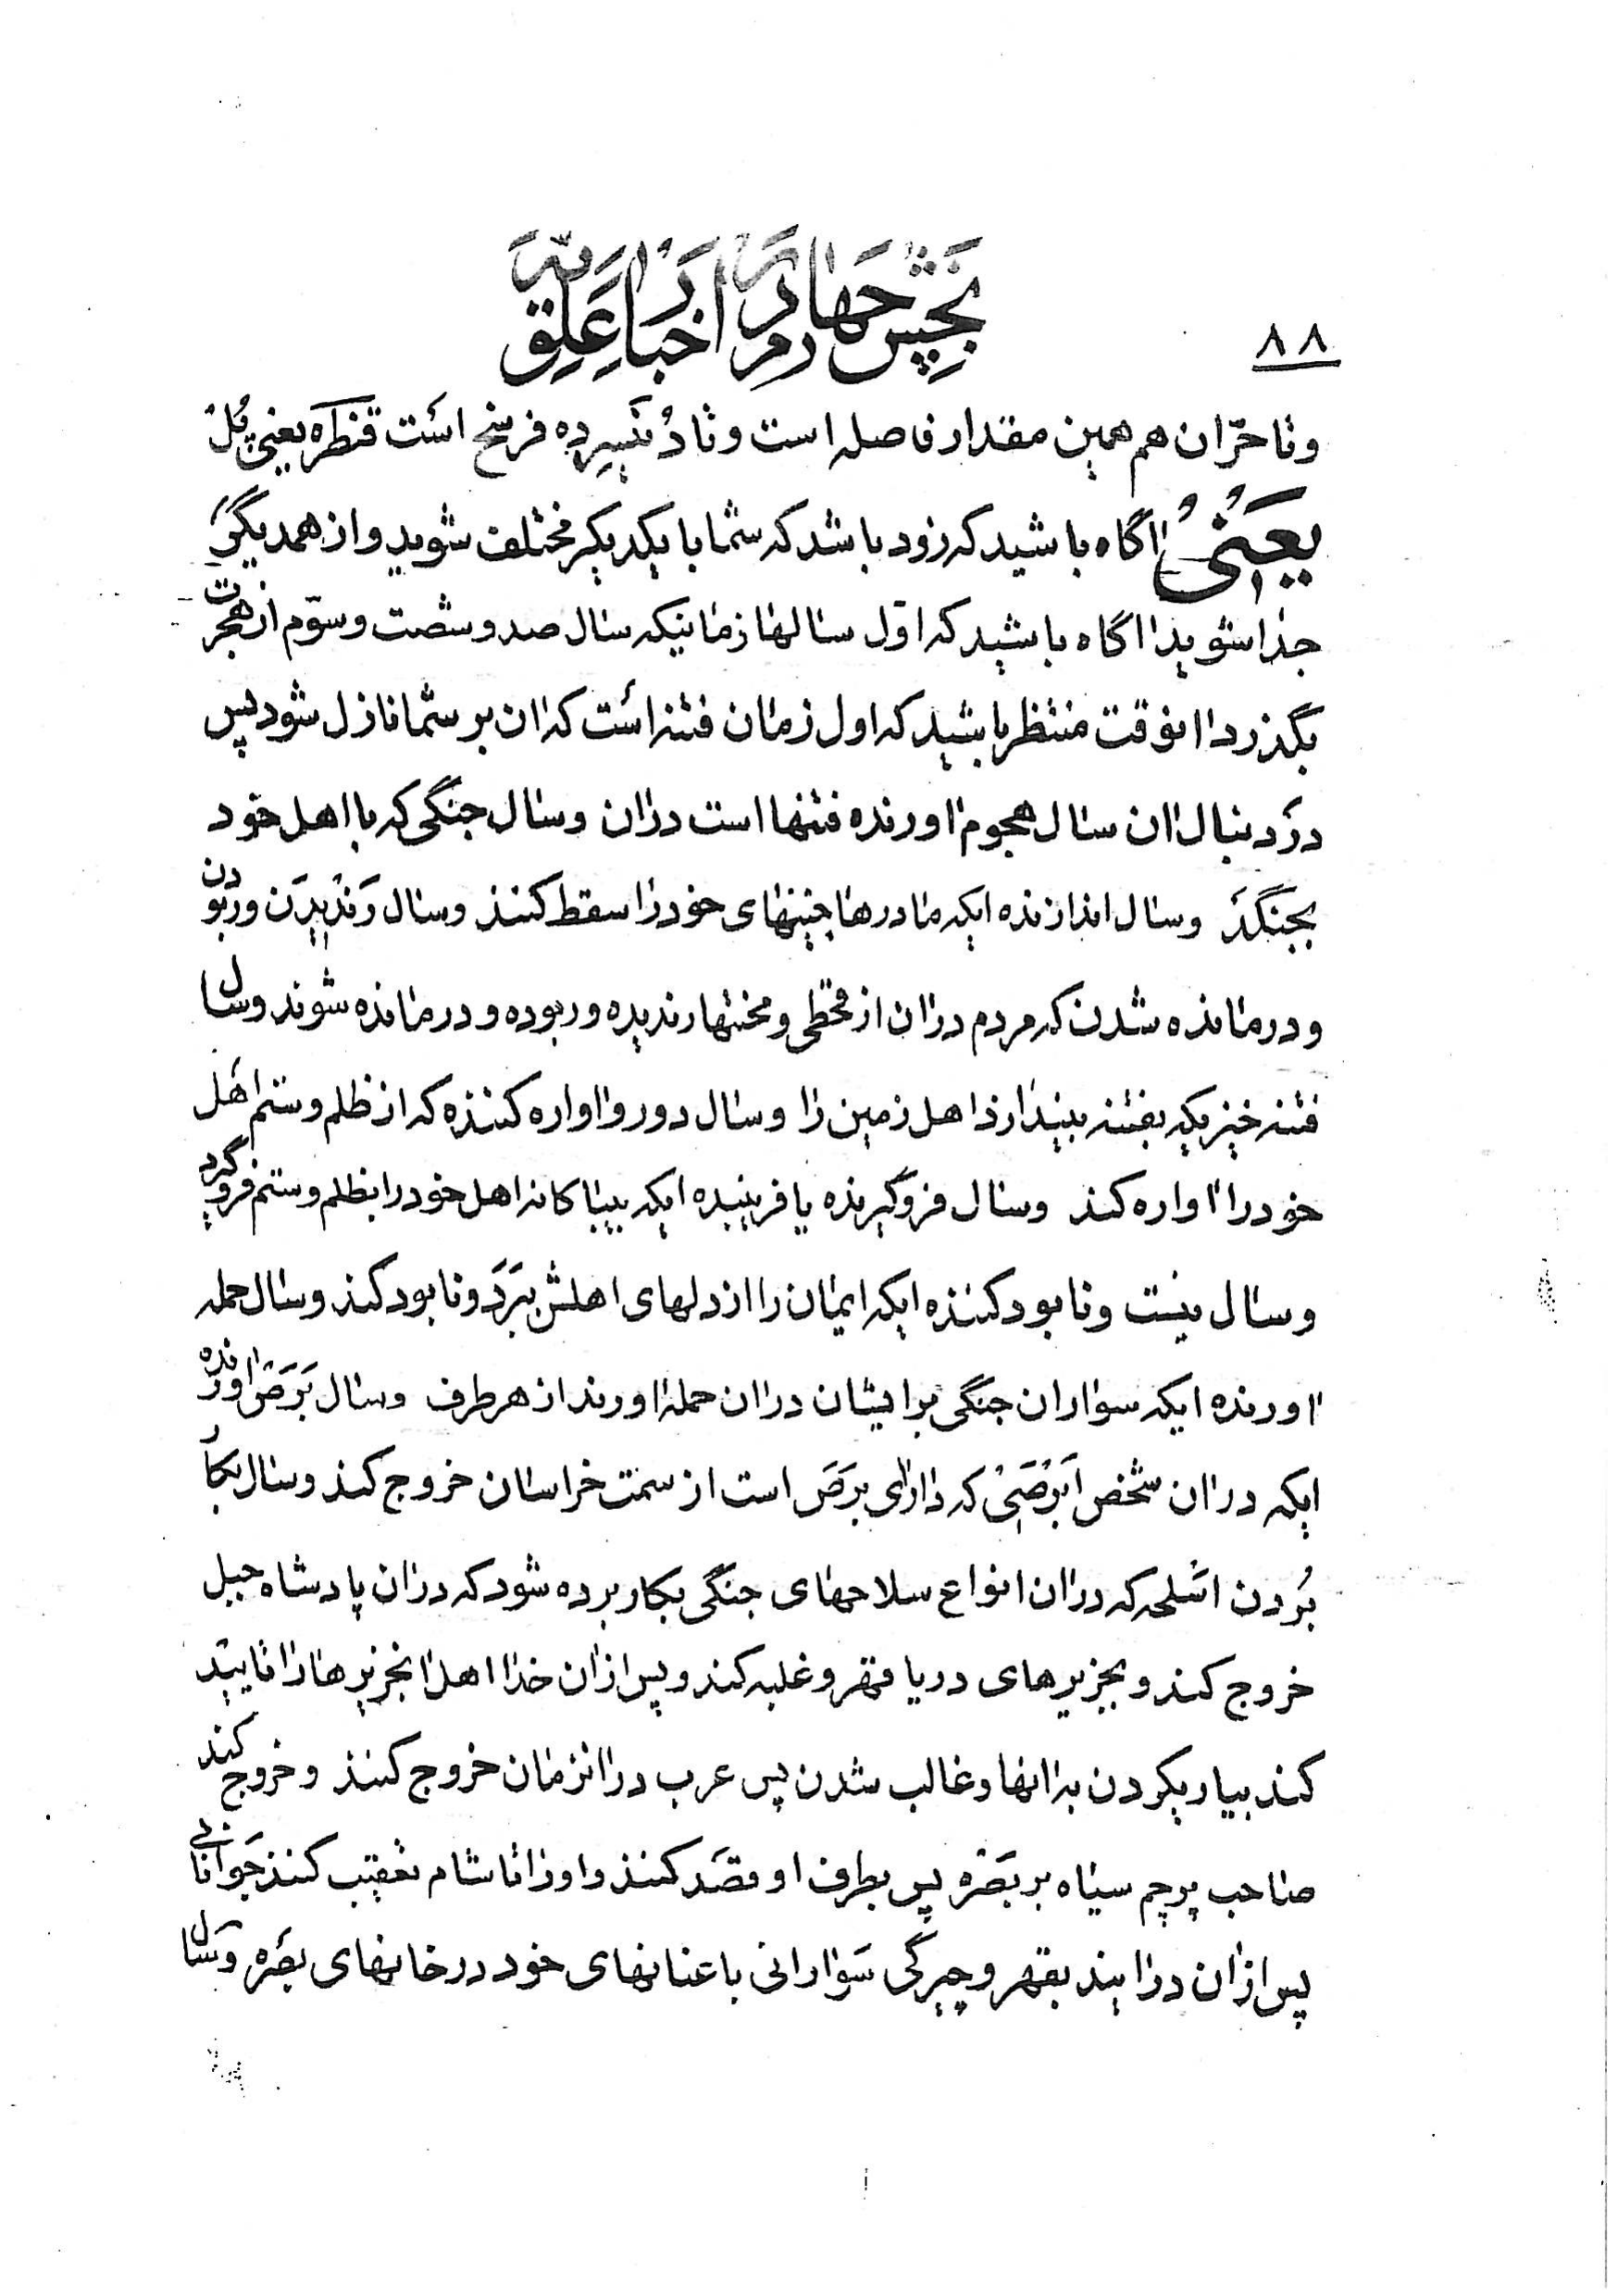 بخش چهارم در اخبار علویه
۸۸
و تا حرّان هم همین مقدار فاصله است و تا دُنَیسِر ده فرسخ است قنطره یعنی پُل
یعنی اگاه باشید که زود باشد که شما با یکدیگر مختلف شوید و از همدیگر
جدا شوید اگاه باشید که اوّل سالها زمانیکه سال صد و شصت و سوّم از هجرت
بگذرد انوقت منتظر باشید که اول زمان فتنه است که ان بر شما نازل شود پس
در دنبال ان سال هجوم اورنده فتنها است در ان و سال جنگی که با اهل خود
بجنگد و سال اندازنده ایکه مادرها جنینهای خود را سقط کنند و سال رَندیدَن و ربودن
و درمانده شدن که مردم در ان از قحطی و محنتها رندیده و ربوده و درمانده شوند و سال
فتنه خیزیکه بفتنه بیندازد اهل زمین را و سال دور و اواره کننده که از ظلم و ستم اهل
خود را اواره کند و سال فروگیرنده یا فریبنده ایکه بیباکانه اهل خود را بظلم و ستم فروگیرد
و سال نیست و نابود کننده ایکه ایمان را از دلهای اهلش بَبَرَد و نابود کند و سال حمله
اورنده ایکه سواران جنگی بر ایشان در ان حمله اورند از هر طرف و سال بَرَص اورنده
ایکه در ان شخص اَبرَصی که دارای برَصَ است از سمت خراسان خروج کند و سال بکار
بُردن اسلحه که در ان انواع سلاحهای جنگی بکار برده شود که در ان پادشاه جبل
خروج کند و بجزیرهای دریا قهر و غلبه کند و پس از ان خدا اهل انجزیرها را تایید
کند بیاری کردن به انها و غالب شدن پس عرب در انزمان خروج کنند و خروج کند
صاحب پرچم سیاه بر بصره پس بطرف او قصد کنند و او را تا شام تعقیب کنند جوانانی
پس از ان در ایند بقهر و چیرگی سَوارانی با عنانهای خود در خانهای بصره و سال